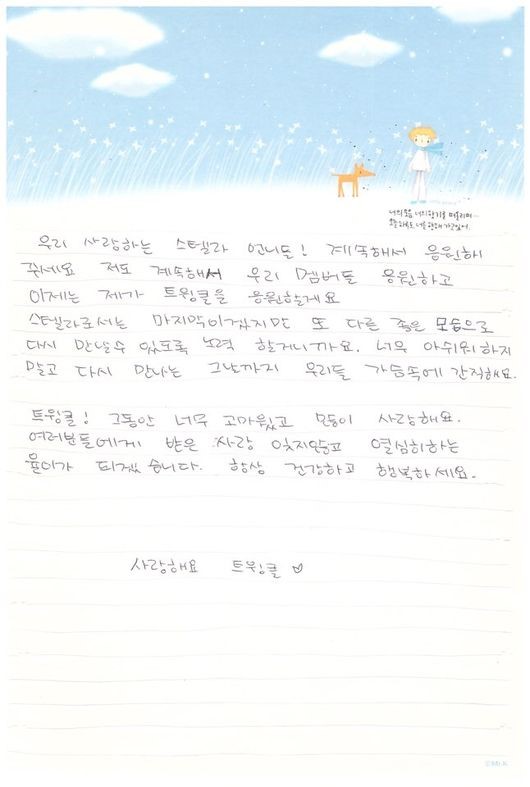 너의 모습 너의 향기를 떠올리며...
오늘 하루도 너를 향해 가고 있어.
우리 사랑하는 스텔라 언니들! 계속해서 응원해
줘세요 저도 계속해서 우리 멤버들 응원하고
이제는 제가 트윙클을 응원할게요
스텔라로서는 마지막이겠지만 또 다른 좋은 모습으로
다시 만날수 있도록 노력 할거니까요. 너무 아쉬워하지
말고 다시 만나는 그날까지 우리를 가슴속에 간직해요.
트윙클! 그동안 너무 고마웠고 모두 사랑해요.
여러분들에게 받은 사랑 잊지않고 열심히하는
윤이가 되겠습니다. 항상 건강하고 행복하세요.
사랑해요 트윙클 ♡
©Mr.K